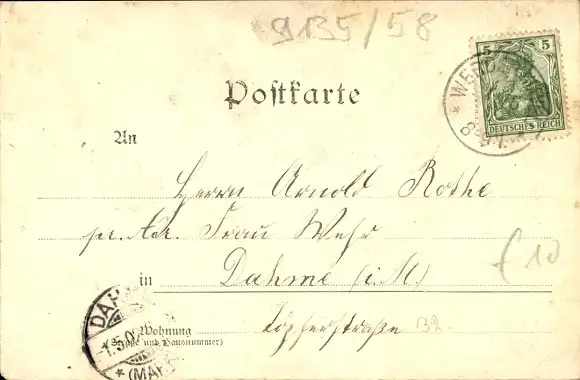 9135/58
5 5
WE
DEUTSCHES REICH
Postkarte
An
Herrn Arnold Rothe
pr. Adr. Frau Wehr
in Dahme (i. M)
Wohnung
(Straße und Hausnummer)
Töpferstraße 32.
€ 10
DAH
1.5.0
* (MAR